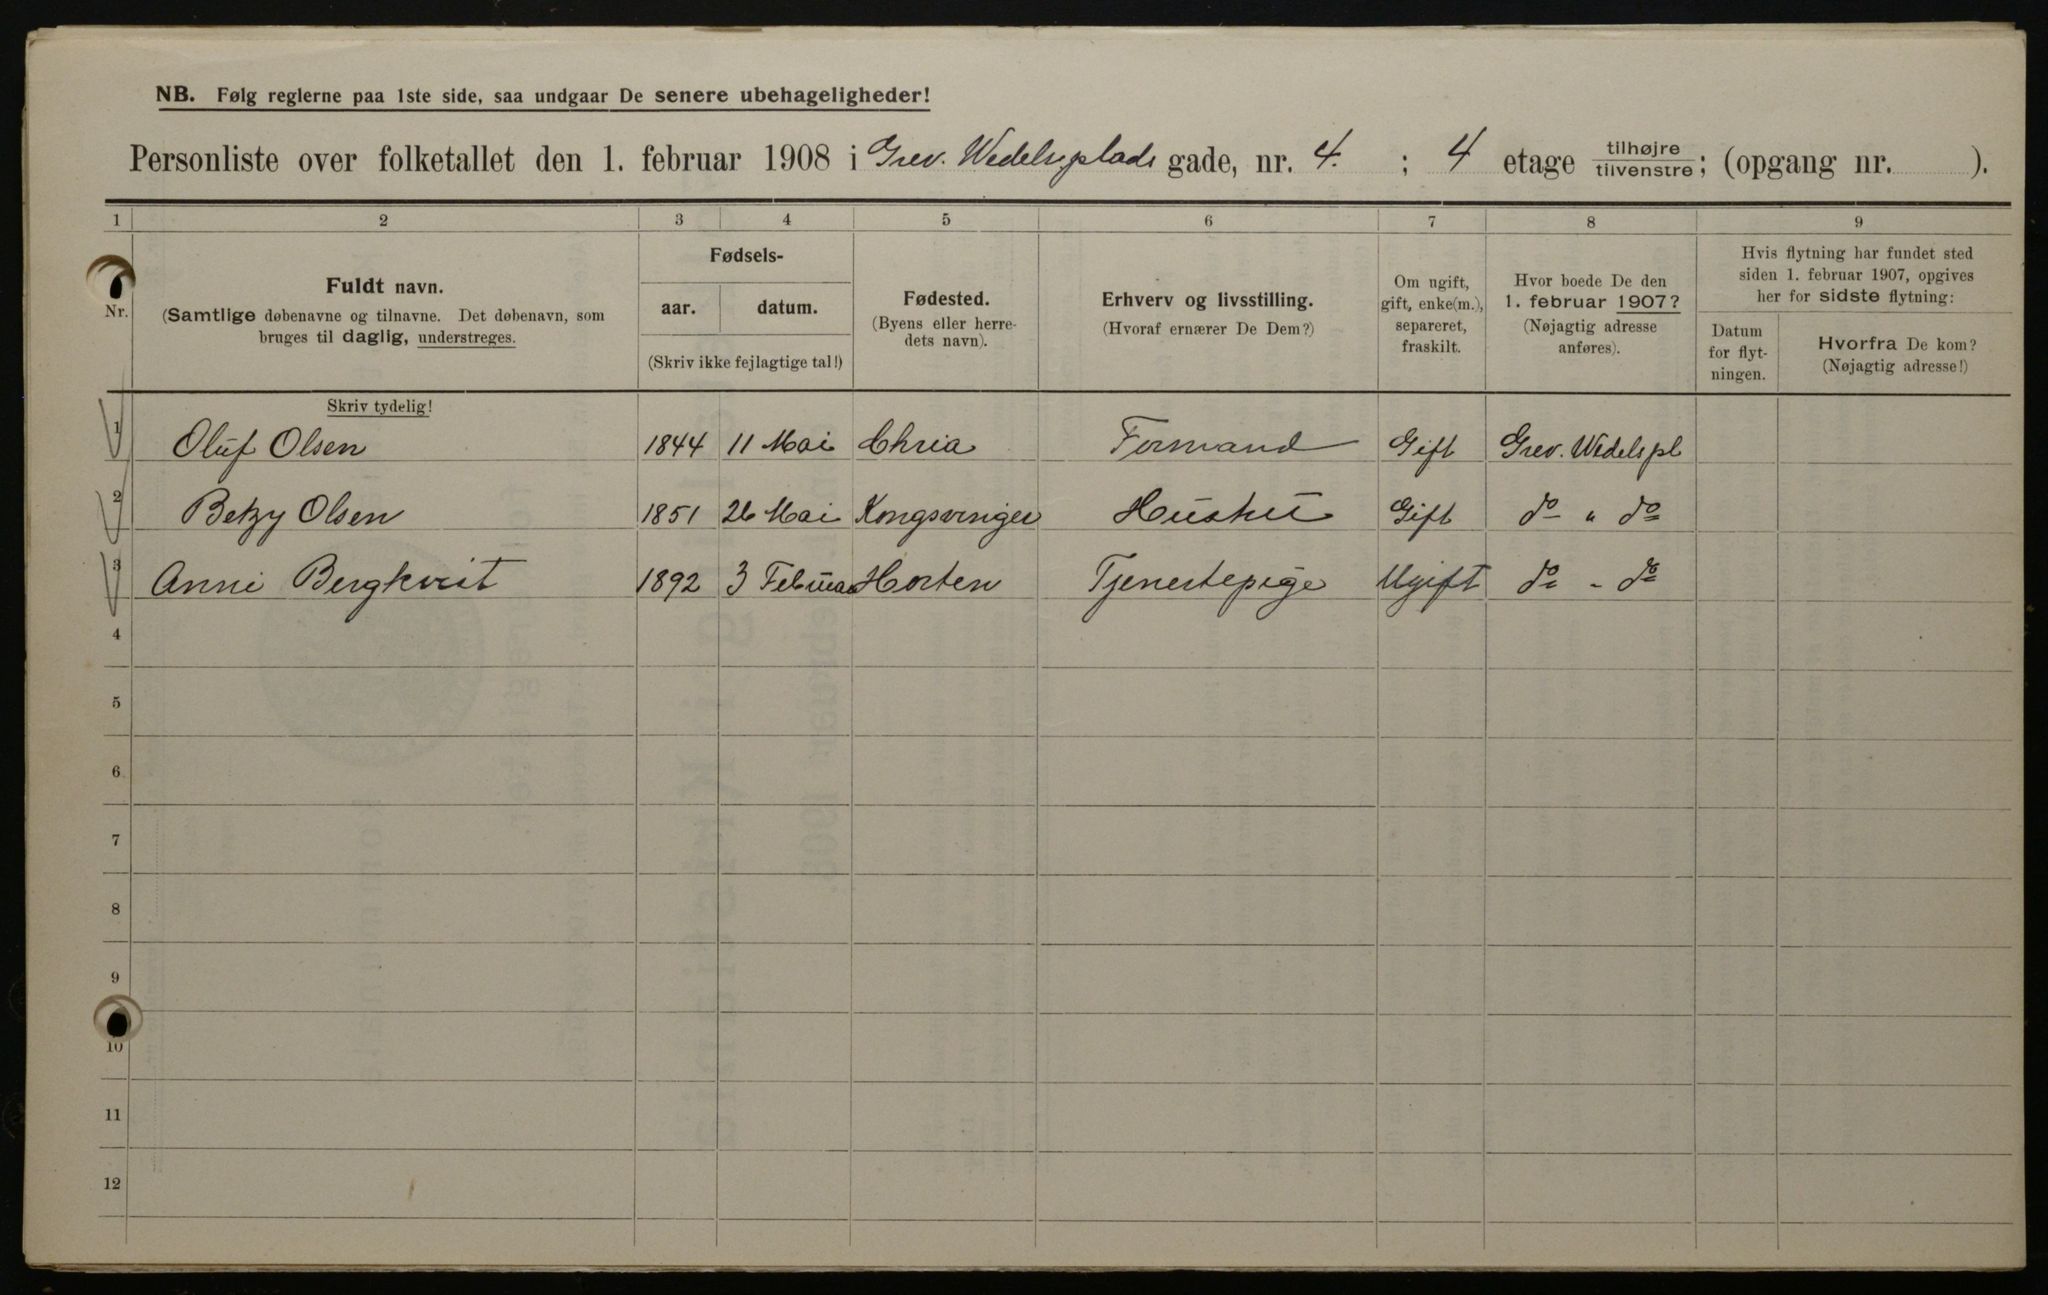 NB. Følg reglerne paa 1ste side, saa undgaar De senere ubehageligheder!
Personliste over folketallet den 1. februar 1908 i Grev. Wedelsplads gade, nr. 4. ; 4 etage tilhøjre / tilvenstre; (opgang nr. ).
1 2 3 4 5 6 7 8 9
Nr.
Fuldt navn.
(Samtlige døbenavne og tilnavne. Det døbenavn, som
bruges til daglig, understreges.
Fødsels-
aar. datum.
(Skriv ikke fejlagtige tal!)
Fødested.
(Byens eller herre-
dets navn).
Erhverv og livsstilling.
(Hvoraf ernærer De Dem?)
Om ugift,
gift, enke(m.),
separeret,
fraskilt.
Hvor boede De den
1. februar 1907?
(Nøjagtig adresse
anføres).
Hvis flytning har fundet sted
siden 1. februar 1907, opgives
her for sidste flytning:
Datum
for flyt-
ningen.
Hvorfra De kom?
(Nøjagtig adresse!)
Skriv tydelig!
1 Oluf Olsen 1844 11 Mai Chria Formand Gift Grev. Wedelspl
2 Betzy Olsen 1851 26 Mai Kongsvinger Hustru Gift do " do
3 Anni Bergkvist 1892 3 Februar Horten Tjenestepige Ugift do - do
4
5
6
7
8
9
10
11
12